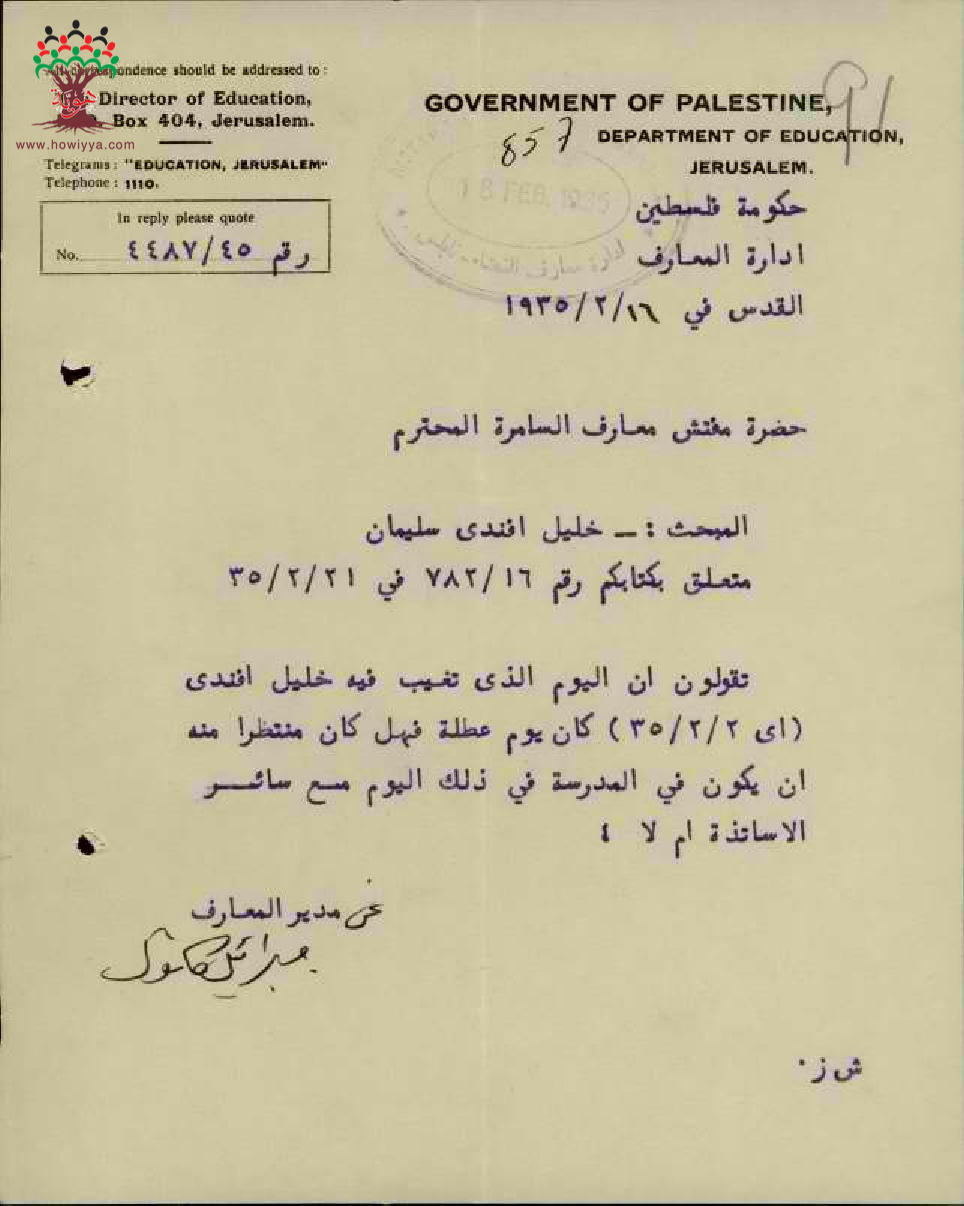 All correspondence should be addressed to :
Director of Education,
Box 404, Jerusalem.
www.howiyya.com
Telegrams : "EDUCATION, JERUSALEM"
Telephone : 1110.
In reply please quote
No. رقم ٤٤٨٧/٤٥
91
GOVERNMENT OF PALESTINE,
857
DEPARTMENT OF EDUCATION,
JERUSALEM.
18 FEB. 1935
ادارة معارف نابلس
حكومة فلسطين
ادارة المعارف
القدس في ١٩٣٥/٢/١٦
حضرة مفتش معارف السامرة المحترم
المبحث : ــ خليل افندى سليمان
متعلق بكتابكم رقم ٧٨٢/١٦ في ٣٥/٢/٢١
تقولون ان اليوم الذى تغيب فيه خليل افندى
(اى ٣٥/٢/٢) كان يوم عطلة فهل كان منتظرا منه
ان يكون في المدرسة في ذلك اليوم مع سائـــر
الاساتذة ام لا ؟
عن مدير المعارف
جبرائيل كاتول
ش ز ٠